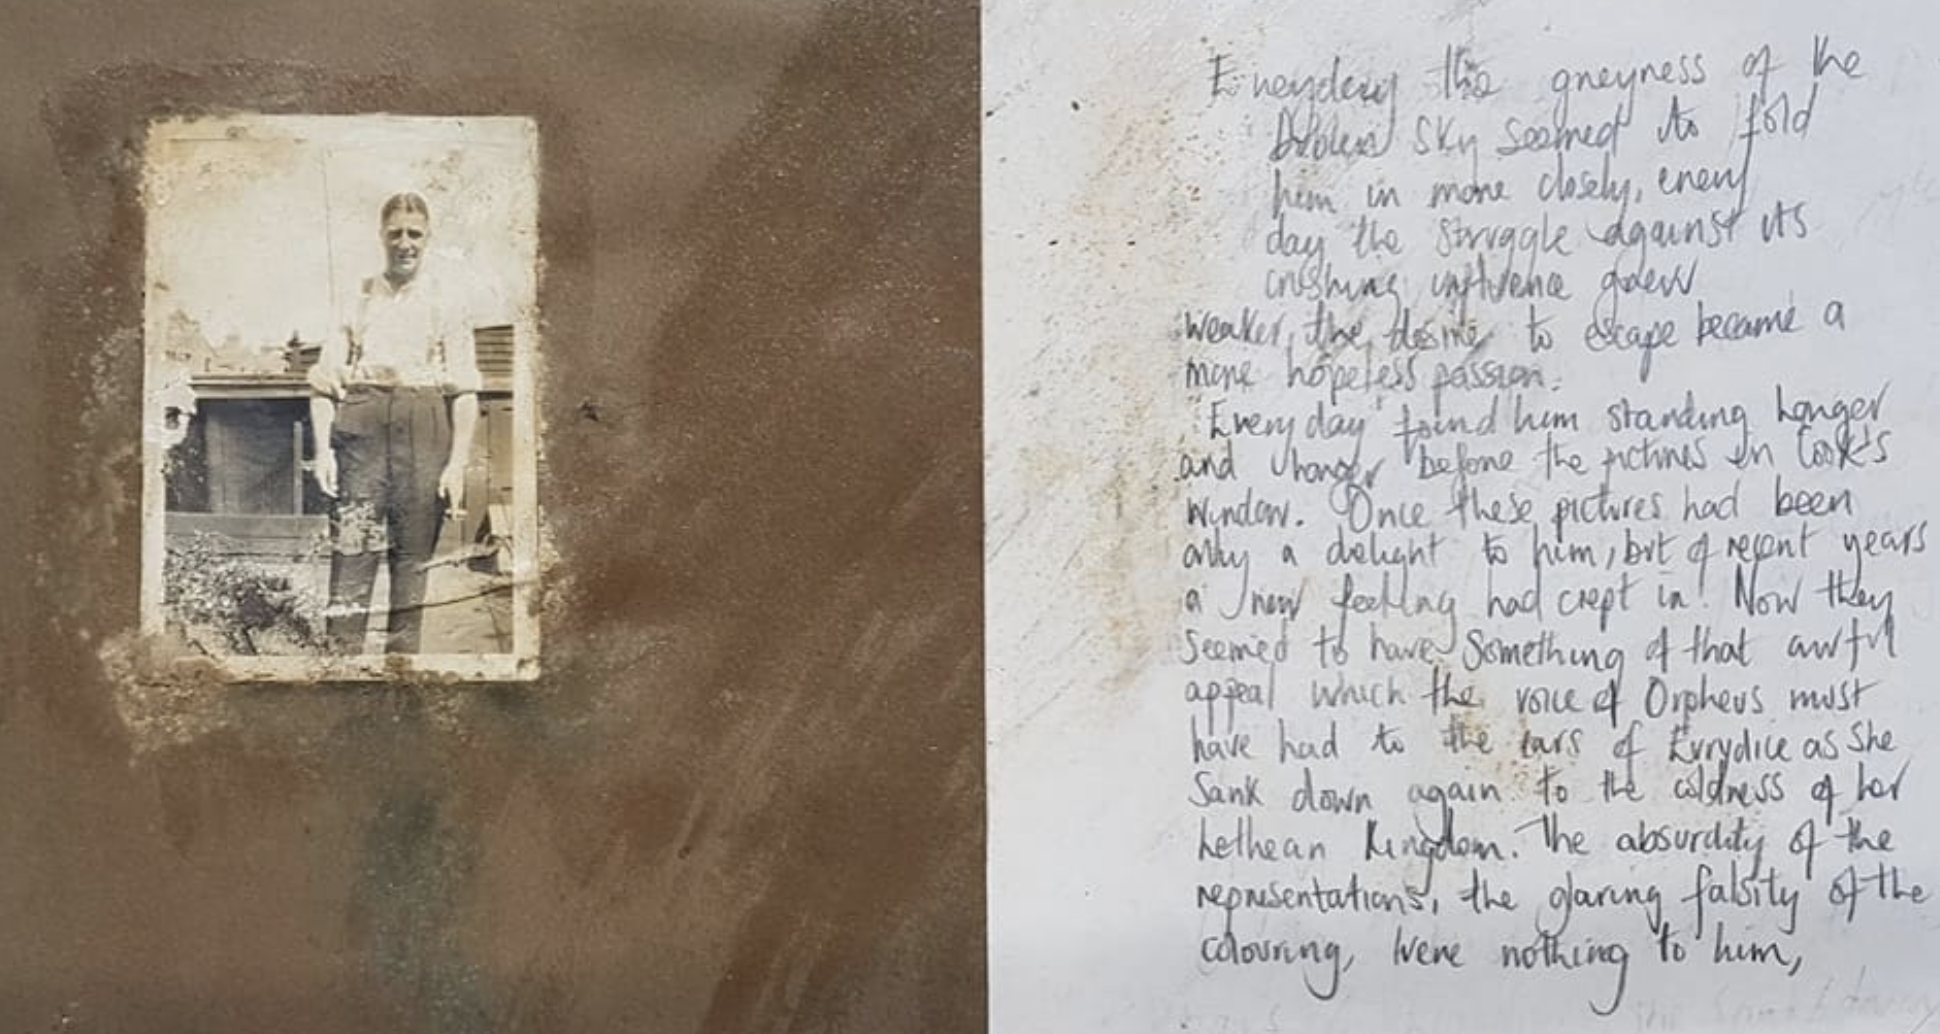 Everyday the greyness of the
Dublin Sky seemed to fold
him in more closely, every
day the struggle against its
crushing influence grew
weaker, the desire to escape became a
more hopeless passion.
Every day found him standing longer
and longer before the pictures in Cook's
window. Once these pictures had been
only a delight to him, but of recent years
a new feeling had crept in. Now they
seemed to have something of that awful
appeal which the voice of Orpheus must
have had to the ears of Eurydice as she
sank down again to the coldness of her
Lethean Kingdom. The absurdity of the
representations, the glaring falsity of the
colouring, were nothing to him,